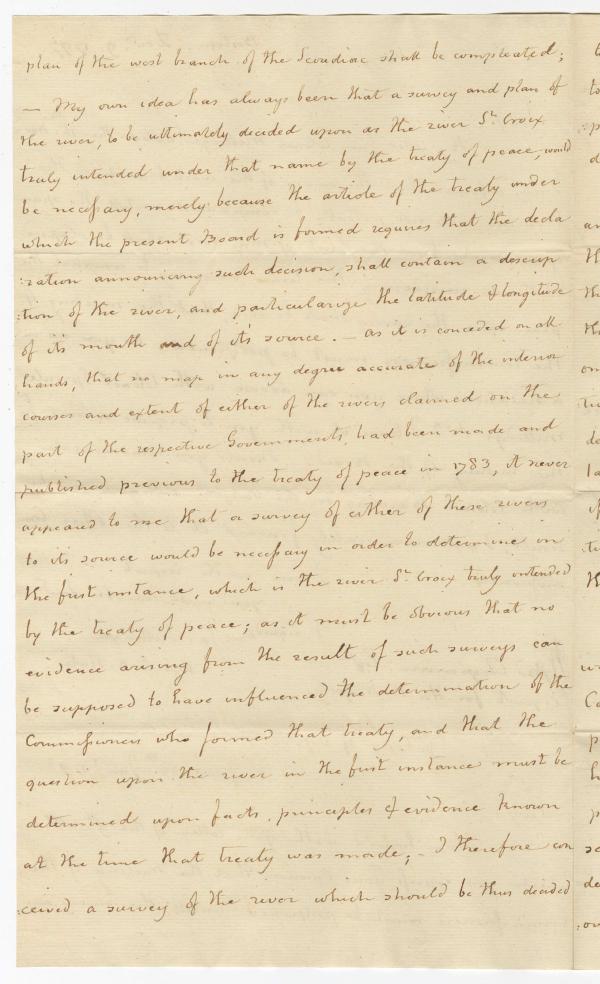 plan of the west branch of the Scoudiac shall be compleated;
— My own idea has always been that a survey and plan of
the river, to be ultimately decided upon as the river St. Croix
truly intended under that name by the treaty of peace, would
be necessary, merely because the article of the treaty under
which the present Board is formed requires that the decla
:ration announcing such decision, shall contain a descrip
:tion of the river, and particularize the latitude & longitude
of it's mouth and of it's source. — as it is conceded on all
hands, that no map in any degree accurate of the interior
courses and extent of either of the rivers claimed on the
part of the respective Governments, had been made and
published previous to the treaty of peace in 1783, it never
appeared to me that a survey of either of these rivers
to its source would be necessary in order to determine in
the first instance, which is the river St. Croix truly intended
by the treaty of peace; as it must be obvious that no
evidence arising from the result of such surveys can
be supposed to have influenced the determination of the
Commissioners who formed that treaty, and that the
question upon the river in the first instance must be
determined upon facts, principles & evidence known
at the time that treaty was made; — I therefore con
:ceived a survey of the river which should be thus decided